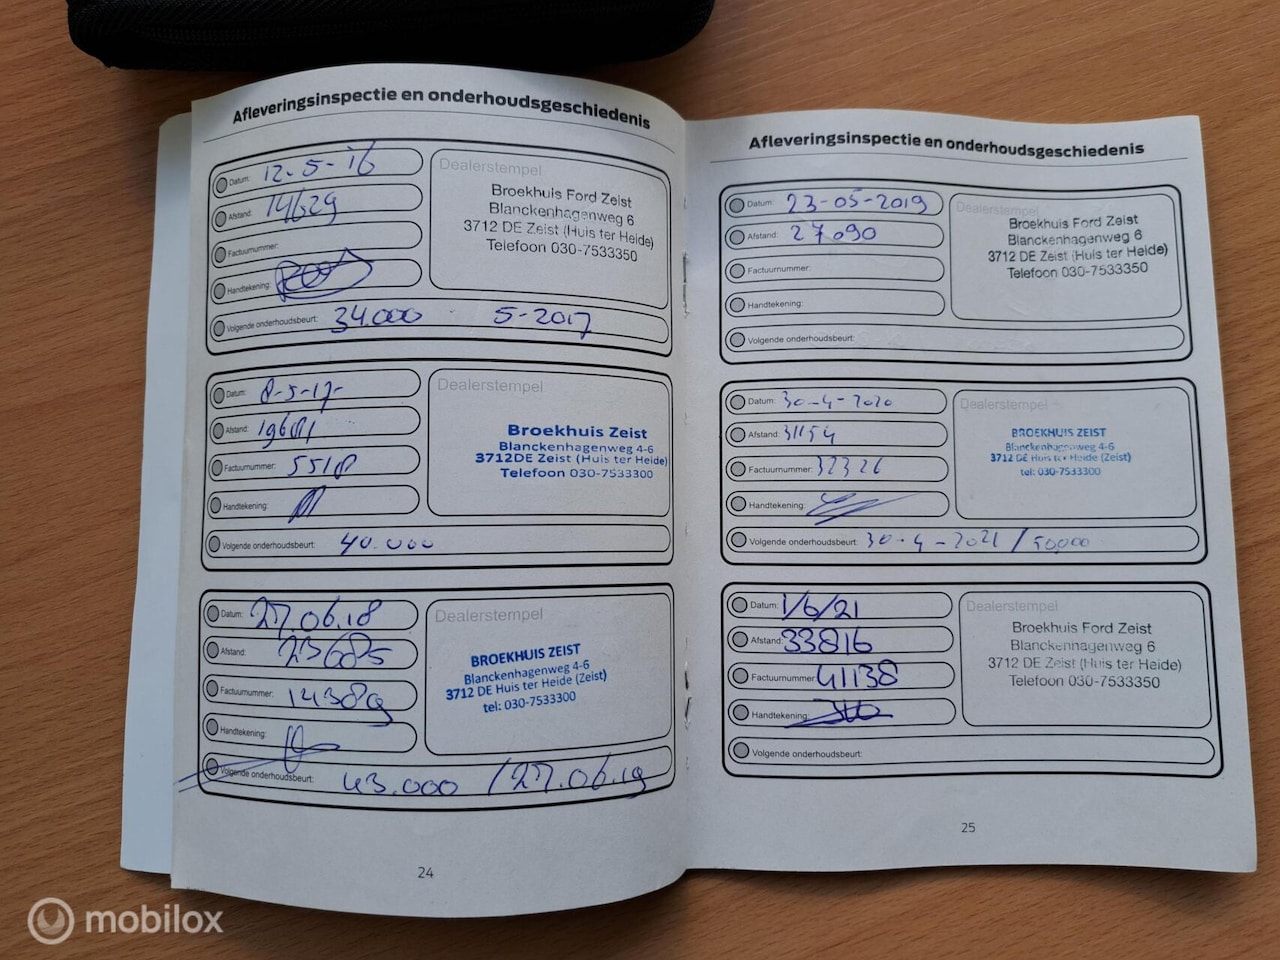 Afleveringsinspectie en onderhoudsgeschiedenis
Datum: 12-5-16
Afstand: 14629
Factuurnummer:
Handtekening:
Volgende onderhoudsbeurt: 34.000 5-2017
Dealerstempel
Broekhuis Ford Zeist
Blanckenhagenweg 6
3712 DE Zeist (Huis ter Heide)
Telefoon 030-7533350
Datum: 8-5-17-
Afstand: 19681
Factuurnummer: 5518
Handtekening:
Volgende onderhoudsbeurt: 40.000
Dealerstempel
Broekhuis Zeist
Blanckenhagenweg 4-6
3712DE Zeist (Huis ter Heide)
Telefoon 030-7533300
Datum: 27.06.18
Afstand: 23685
Factuurnummer: 14389
Handtekening:
Volgende onderhoudsbeurt: 43.000 / 27.06.19
Dealerstempel
BROEKHUIS ZEIST
Blanckenhagenweg 4-6
3712 DE Huis ter Heide (Zeist)
tel: 030-7533300
24
Afleveringsinspectie en onderhoudsgeschiedenis
Datum: 23-05-2019
Afstand: 27090
Factuurnummer:
Handtekening:
Volgende onderhoudsbeurt:
Dealerstempel
Broekhuis Ford Zeist
Blanckenhagenweg 6
3712 DE Zeist (Huis ter Heide)
Telefoon 030-7533350
Datum: 30-4-2020
Afstand: 31154
Factuurnummer: 32326
Handtekening:
Volgende onderhoudsbeurt: 30-4-2021 / 50000
Dealerstempel
BROEKHUIS ZEIST
Blanckenhagenweg 4-6
3712 DE Huis ter Heide (Zeist)
tel: 030-7533300
Datum: 1/6/21
Afstand: 33816
Factuurnummer: 41138
Handtekening:
Volgende onderhoudsbeurt:
Dealerstempel
Broekhuis Ford Zeist
Blanckenhagenweg 6
3712 DE Zeist (Huis ter Heide)
Telefoon 030-7533350
25
mobilox